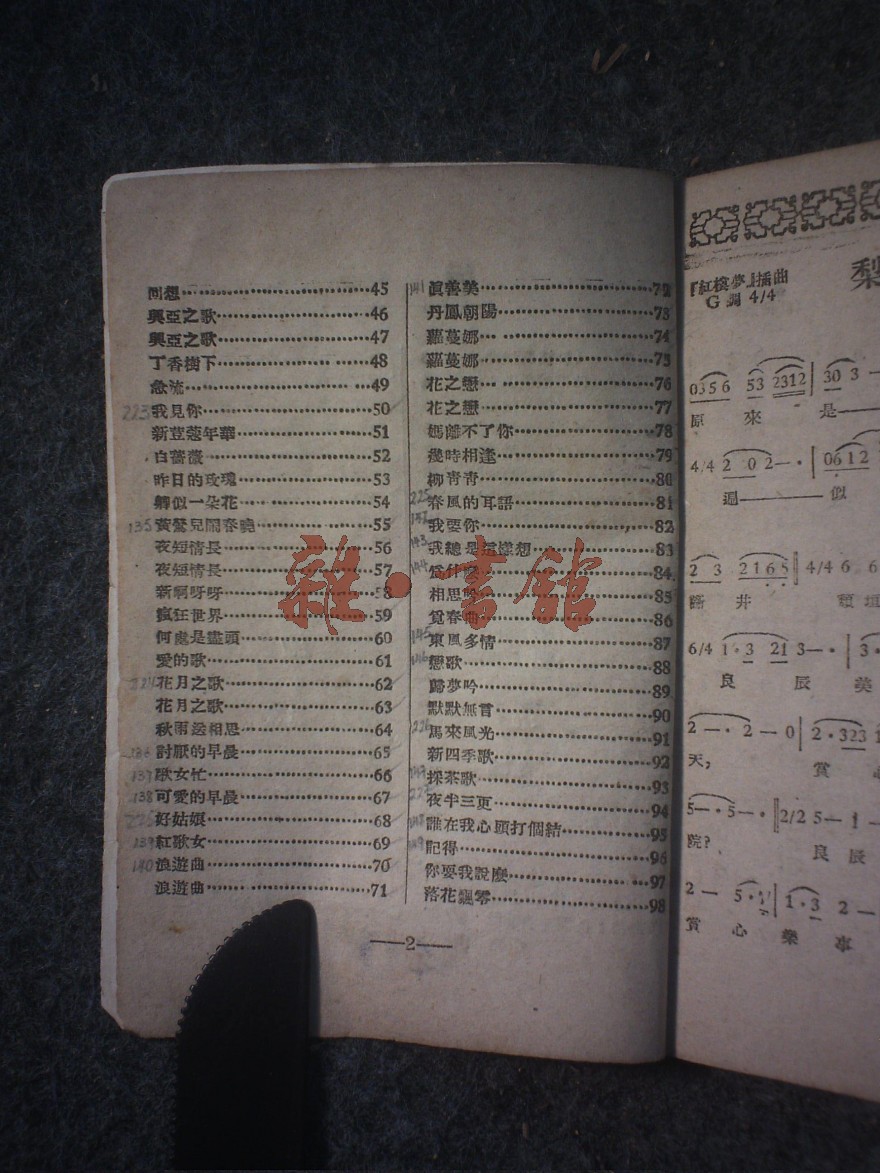 回想 45
興亞之歌 46
興亞之歌 47
丁香樹下 48
急流 49
223 我見你 50
新荳蔻年華 51
白薔薇 52
昨日的玫瑰 53
卿似一朵花 54
135 黃鶯兒鬧春曉 55
夜短情長 56
夜短情長 57
58
瘋狂世界 59
何處是盡頭 60
愛的歌 61
224 花月之歌 62
花月之歌 63
秋雨送相思 64
136 討厭的早晨 65
137 歌女忙 66
138 可愛的早晨 67
225 好姑娘 68
139 紅歌女 69
140 浪遊曲 70
浪遊曲 71
141 眞善美 72
丹鳳朝陽 73
蘿蔓娜 74
蘿蔓娜 75
花之戀 76
花之戀 77
媽離不了你 78
幾時相逢 79
柳青青 80
225 春風的耳語 81
142 我要你 82
143 我總是這樣想 83
144 爲什麼 84
相思 85
覓春曲 86
145 東風多情 87
146 戀歌 88
歸夢吟 89
默默無言 90
226 馬來風光 91
新四季歌 92
147 採茶歌 93
227 夜半三更 94
148 誰在我心頭打個結 95
149 記得 96
你要我說麼 97
落花飄零 98
2
雜·書館
梨
『紅樓夢』插曲
G調 4/4
0356 53 2312 30 3 —
原 來 是
4/4 2 0 2 — · 0612
迴 似
2 3 2165 4/4 6 6
斷 井 頹 垣
6/4 1·3 21 3 — · 3·
良 辰 美
2 — · 2 — 0 2·323
天, 賞
5 — · 5 — · 2/2 5 — 1 —
院? 良 辰
2 — 5·1 1·3 2 —
賞 心 樂 事